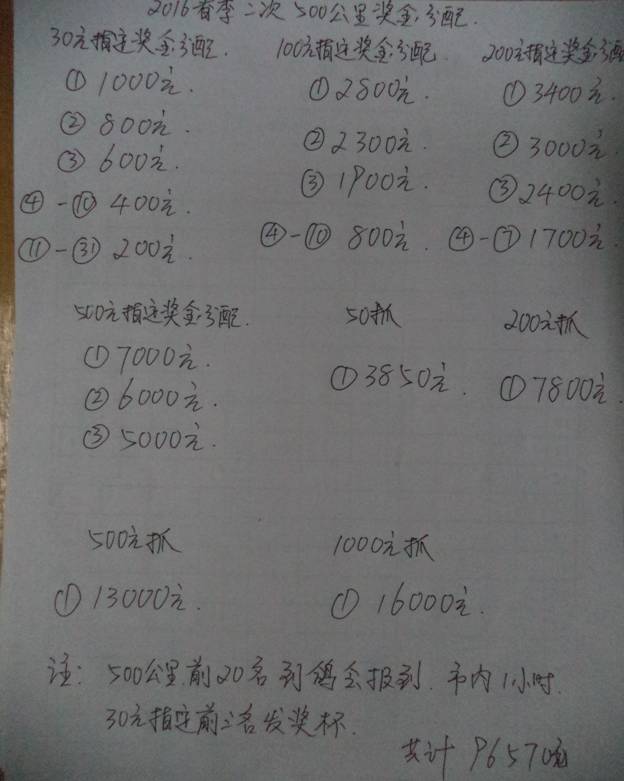 2016春季二次500公里奖金分配.
30元指定奖金分配. 100元指定奖金分配 200元指定奖金分配
① 1000元. ① 2800元. ① 3400元.
② 800元. ② 2300元. ② 3000元.
③ 600元. ③ 1900元. ③ 2400元.
④-⑩ 400元. ④-⑩ 800元. ④-⑦ 1700元.
⑪-㉛ 200元.
500元指定奖金分配. 50抓 200元抓
① 7000元. ① 3850元. ① 7800元.
② 6000元.
③ 5000元.
500元抓 1000元抓
① 13000元. ① 16000元.
注: 500公里前20名到鸽会报到. 市内1小时.
30元指定前三名发奖杯.
共计 96570元